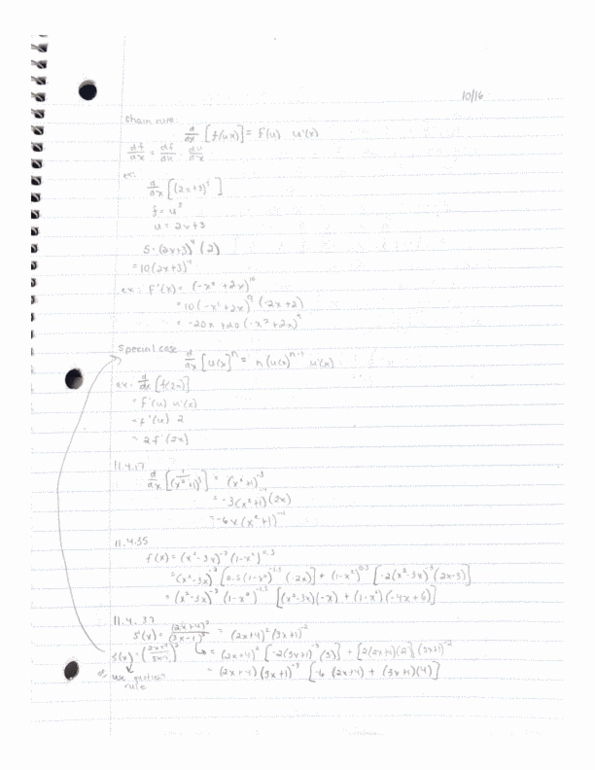 10/16
chain rule:
d/dx [f(u(x)] = f'(u) u'(x)
df/dx = df/du · du/dx
ex.
d/dx [(2x+3)⁵]
f = u⁵
u = 2x+3
5·(2x+3)⁴(2)
= 10(2x+3)⁴
ex: F'(x) = (-x² + 2x)¹⁰
= 10(-x²+2x)⁹(-2x+2)
= -20x+20(-x²+2x)⁹
Special case d/dx [u(x)]ⁿ = n(u(x))ⁿ⁻¹ u'(x)
ex. d/dx [f(2x)]
= f'(u) u'(x)
= f'(u) 2
= 2f'(2x)
11.4.17
d/dx [1/(x²+1)³] = (x²+1)⁻³
= -3(x²+1)⁻⁴(2x)
= -6x(x²+1)⁻⁴
11.4.35
f(x) = (x²-3x)⁻²(1-x²)⁰·⁵
= (x²-3x)⁻²[0.5(1-x²)⁻⁰·⁵(-2x)] + (1-x²)⁰·⁵[-2(x²-3x)⁻³(2x-3)]
= (x²-3x)⁻³(1-x²)⁻⁰·⁵[(x²-3x)(-x) + (1-x²)(-4x+6)]
11.4.37
s'(x) = (2x+4)²/(3x-1)² = (2x+4)²(3x+1)⁻²
s(x) = (2x+4/3x-1)² = (2x+4)²[-2(3x+1)⁻³(3)] + [2(2x+4)(2)](3x+1)⁻²
or use quotient rule
= (2x+4)(3x+1)⁻³[-6(2x+4) + (3x+1)(4)]